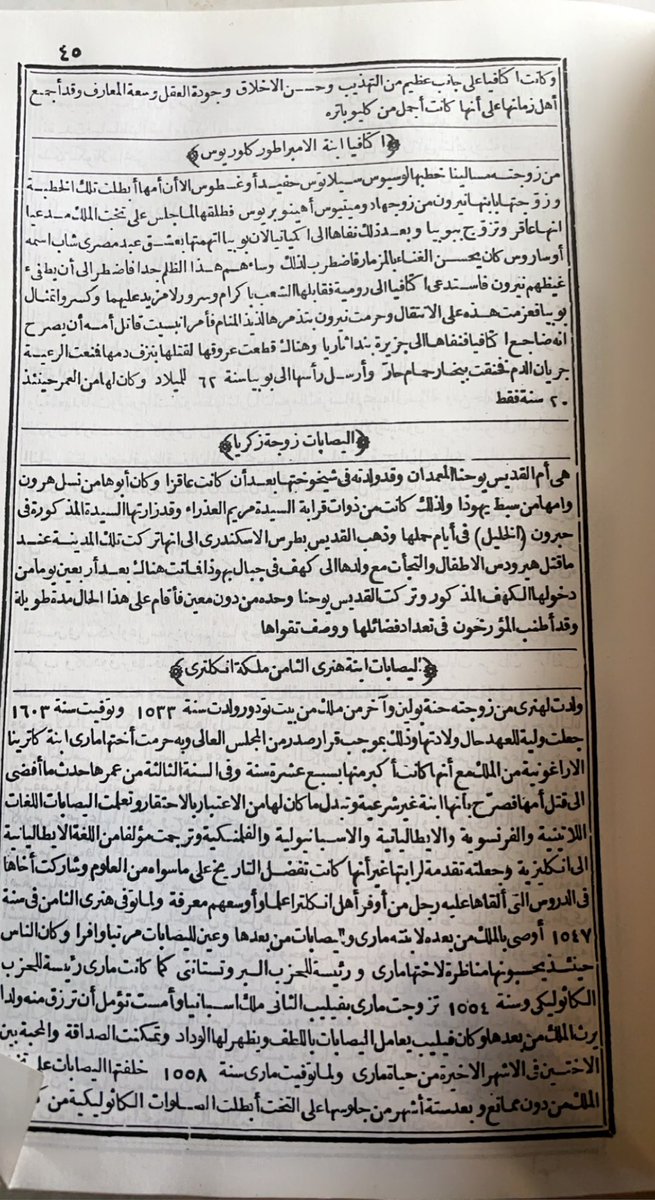 ٤٥
وكانت اكتافيا على جانب عظيم من التهذيب وحسن الاخلاق وجودة العقل وسعة المعارف وقد أجمع
أهل زمانها على أنها كانت أجمل من كليوباتره
﴿اكتافيا ابنة الامبراطور كلوريوس﴾
من زوجته مسالينا خطبها لوسيوس سيلانوس حفيد أوغسطوس الا أن أمها أبطلت تلك الخطبة
وزوجتها بابنها نيرون من زوجها دوميتيوس أهينوبربوس فطلقها لما جلس على تخت الملك مدعيا
انها عاقر وتزوج ببوبيا وبعد ذلك نفاها الى اكمانيا لان بوبيا اتهمتها بعشق عبد مصرى شاب اسمه
أوساروس كان يحسن الغناء بالمزمار فاضطرب لذلك وساءهم هذا الظلم جدا فاضطر الى أن يطفىء
غيظهم نيرون فاستدعى اكتافيا الى رومية فقابلها الشعب باكرام وسرور لا مزيد عليهما وكسروا تمثال
بوبيا فعزمت هذه على الانتقال وحرمت نيرون بتذمرها لذيذ المنام فأمر انيسيت قاتل أمه أن يصرح
انه ضاجع اكتافيا فنفاها الى جزيرة بنداتاريا وهناك قطعت عروقها لقتلها بنزف دمها فمنعت الرعبة
جريان الدم فخنقت ببخار حمام حار وأرسل رأسها الى بوبيا سنة ٦٢ للميلاد وكان لها من العمر حينئذ
٢٠ سنة فقط
﴿اليصابات زوجة زكريا﴾
هى أم القديس يوحنا المعمدان وقد ولدته فى شيخوختها بعد أن كانت عاقرا وكان أبوها من نسل هرون
وامها من سبط يهوذا ولذلك كانت من ذوات قرابة السيدة مريم العذراء وقد زارتها السيدة المذكورة فى
حبرون (الخليل) فى أيام حملها وذهب القديس بطرس الاسكندرى الى انها تركت تلك المدينة عند
ما قتل هيرودس الاطفال والتجأت مع ولدها الى كهف فى جبال يهوذا فاتت هناك بعد أربعين يوما من
دخولها الكهف المذكور وتركت القديس يوحنا وحده من دون معين فأقام على هذا الحال مدة طويلة
وقد أطنب المؤرخون فى تعداد فضائلها ووصف تقواها
﴿اليصابات ابنة هنرى الثامن ملكة انكلترى﴾
ولدت لهنرى من زوجته حنة بولين وآخر من ملك من بيت تودور ولدت سنة ١٥٣٣ وتوفيت سنة ١٦٠٣
جعلت ولية للعهد حال ولادتها وذلك بموجب قرار صدر من المجلس العالى وبه حرمت أختها مارى ابنة كاترينا
الاراغونية من الملك مع أنها كانت أكبر منها بسبع عشرة سنة وفى السنة الثالثة من عمرها حدث ما أفضى
الى قتل أمها فصرح بأنها ابنة غير شرعية وتبدل ما كان لها من الاعتبار بالاحتقار وتعلمت اليصابات اللغات
اللاتينية والفرنسوية والايطاليانية والاسبانيولية والفلمنكية وترجمت مؤلفا من اللغة الايطاليانية
الى انكليزية وجعلته تقدمة لرابتها غير أنها كانت تفضل التاريخ على ماسواه من العلوم وشاركت أخاها
فى الدروس التى ألقاها عليه رجل من أوفر أهل انكلترا علما وأوسعهم معرفة ولما توفى هنرى الثامن فى سنة
١٥٤٧ أوصى بالملك من بعده لابنته مارى واليصابات من بعدها وعين لليصابات مرتبا وافرا وكان الناس
حينئذ يحسبونها مناظرة لاختها مارى ورئيسة للحزب البروتستانتى كما كانت مارى رئيسة للحزب
الكاثوليكى وسنة ١٥٥٤ تزوجت مارى بفيليب الثانى ملك اسبانيا وأمست تؤمل أن ترزق منه ولدا
يرث الملك من بعدها وكان فيليب يعامل اليصابات باللطف ويظهر لها الوداد وتمكنت الصداقة والمحبة بين
الاختين فى الاشهر الاخيرة من حياة مارى ولما توفيت مارى سنة ١٥٥٨ خلفتها اليصابات على
الملك من دون ممانع وبعد ستة أشهر من جلوسها على التخت أبطلت الصلوات الكاثوليكية من